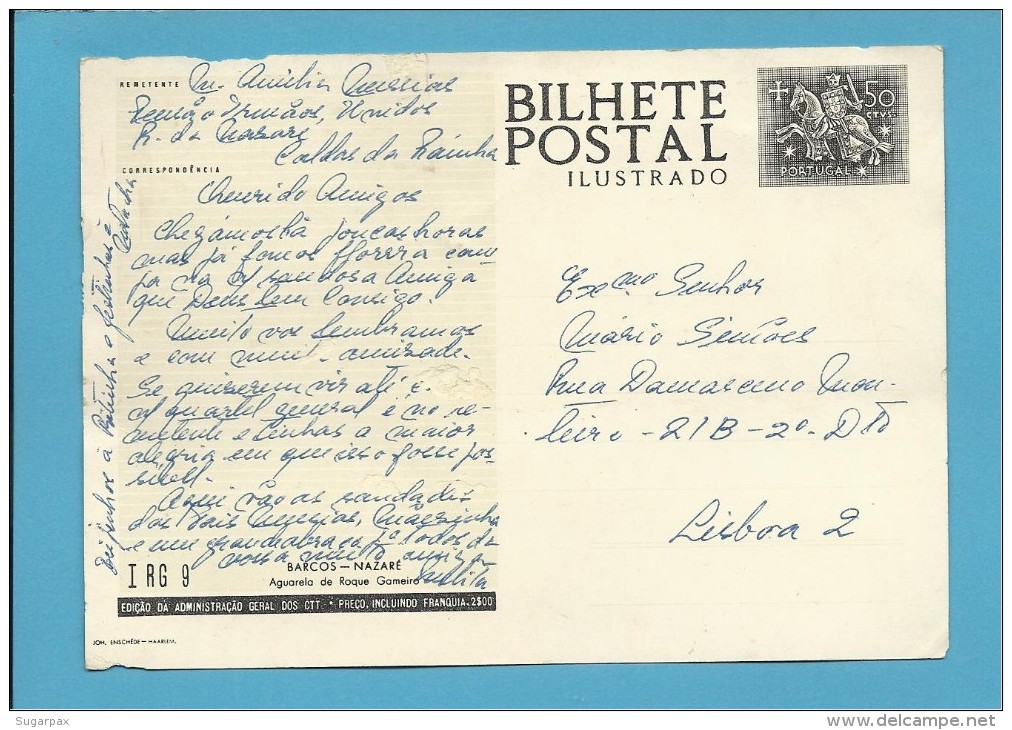 REMETENTE M. Amilia Messias
Irmãos, Unidos
R. da Nazaré
Caldas da Rainha
CORRESPONDÊNCIA
Querido Amigos
Chegámos há poucas horas
mas já fomos
saudosa Amiga
que Deus tem Consigo.
Muito vos lembramos
e com amizade.
Se quiserem vir até
quartel general é no re-
metente e tinhas a maior
alegria em que isso fosse pos-
sível.
Aqui vão as saudades
dos Pais Messias, Mãezinha
e um grande abraço pª todos da
vossa muito amiga
Milita
Beijinhos à
BARCOS — NAZARÉ
Aguarela de Roque Gameiro
I RG 9
EDIÇÃO DA ADMINISTRAÇÃO GERAL DOS CTT. * PREÇO, INCLUINDO FRANQUIA, 2$00
JOH. ENSCHÉDE — HAARLEM.
BILHETE
POSTAL
ILUSTRADO
50
CTVS
PORTUGAL
Exmo Senhor
Mário Simões
Rua Damasceno Mon-
teiro - 21B - 2º - DTO
Lisboa 2
Sugarpax
delcampe.net